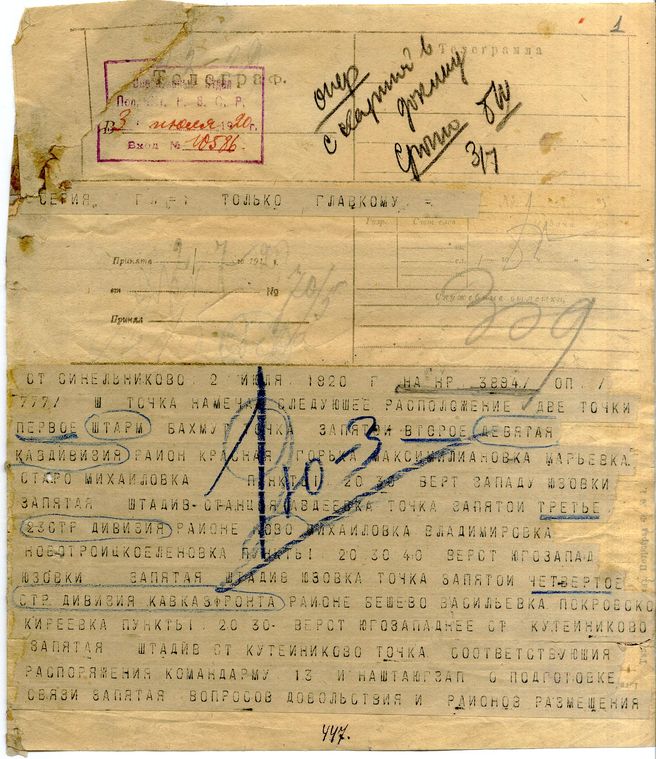 1
Телеграф.
Телеграмма
Пол. Р. В. С. Р.
В 3 июля 1920г.
Вход № 10586.
опер
с картой в
докладу
Срочно
3/7
СЕРИЯ ТОЛЬКО ГЛАВКОМУ =
Разр. Счет слов.
Принята 2/7 19 г.
от №
70/5
Принял
Служебные отметки
309
ОТ СИНЕЛЬНИКОВО 2 ИЮЛЯ 1920 Г НА НР 3894/ ОП /
777/ Ш ТОЧКА НАМЕЧА СЛЕДУЮШЕЕ РАСПОЛОЖЕНИЕ ДВЕ ТОЧКИ
ПЕРВОЕ ШТАРМ БАХМУ ТОЧК ЗАПЯТОЙ ВТОРОЕ ДЕВЯТАЯ
КАВДИВИЗИЯ РАЙОН КРАСНАЯ ГОРЬКА МАКСИМИЛИАНОВКА МАРЬЕВКА
СТАРО МИХАИЛОВКА ПУНКТЫ 20 30 ВЕРТ ЗАПАДУ ЮЗОВКИ
ЗАПЯТАЯ ШТАДИВ СТАНЦИЯ АВДЕЕВКА ТОЧКА ЗАПЯТОЙ ТРЕТЬЕ
23СТР ДИВИЗИЯ РАЙОНЕ НОВО МИХАИЛОВКА ВЛАДИМИРОВКА
НОВОТРОИЦКОЕЛЕНОВКА ПУНКТЫ 20 30 40 ВЕРСТ ЮГОЗАПАД
ЮЗОВКИ ЗАПЯТАЯ ШТАДИВ ЮЗОВКА ТОЧКА ЗАПЯТОЙ ЧЕТВЕРТОЕ
СТР ДИВИЗИЯ КАВКАЗФРОНТА РАЙОНЕ БЕШЕВО ВАСИЛЬЕВКА ПОКРОВСКО
КИРЕЕВКА ПУНКТЫ 20 30- ВЕРСТ ЮГОЗАПАДНЕЕ ОТ КУТЕЙНИКОВО
ЗАПЯТАЯ ШТАДИВ СТ КУТЕЙНИКОВО ТОЧКА СООТВЕТСТВУЮШИЯ
РАСПОРЯЖЕНИЯ КОМАНДАРМУ 13 И НАШТАЮГЗАП О ПОДГОТОВКЕ
СВЯЗИ ЗАПЯТАЯ ВОПРОСОВ ДОВОЛЬСТВИЯ И РАЙОНОВ РАЗМЕЩЕНИЯ
447.